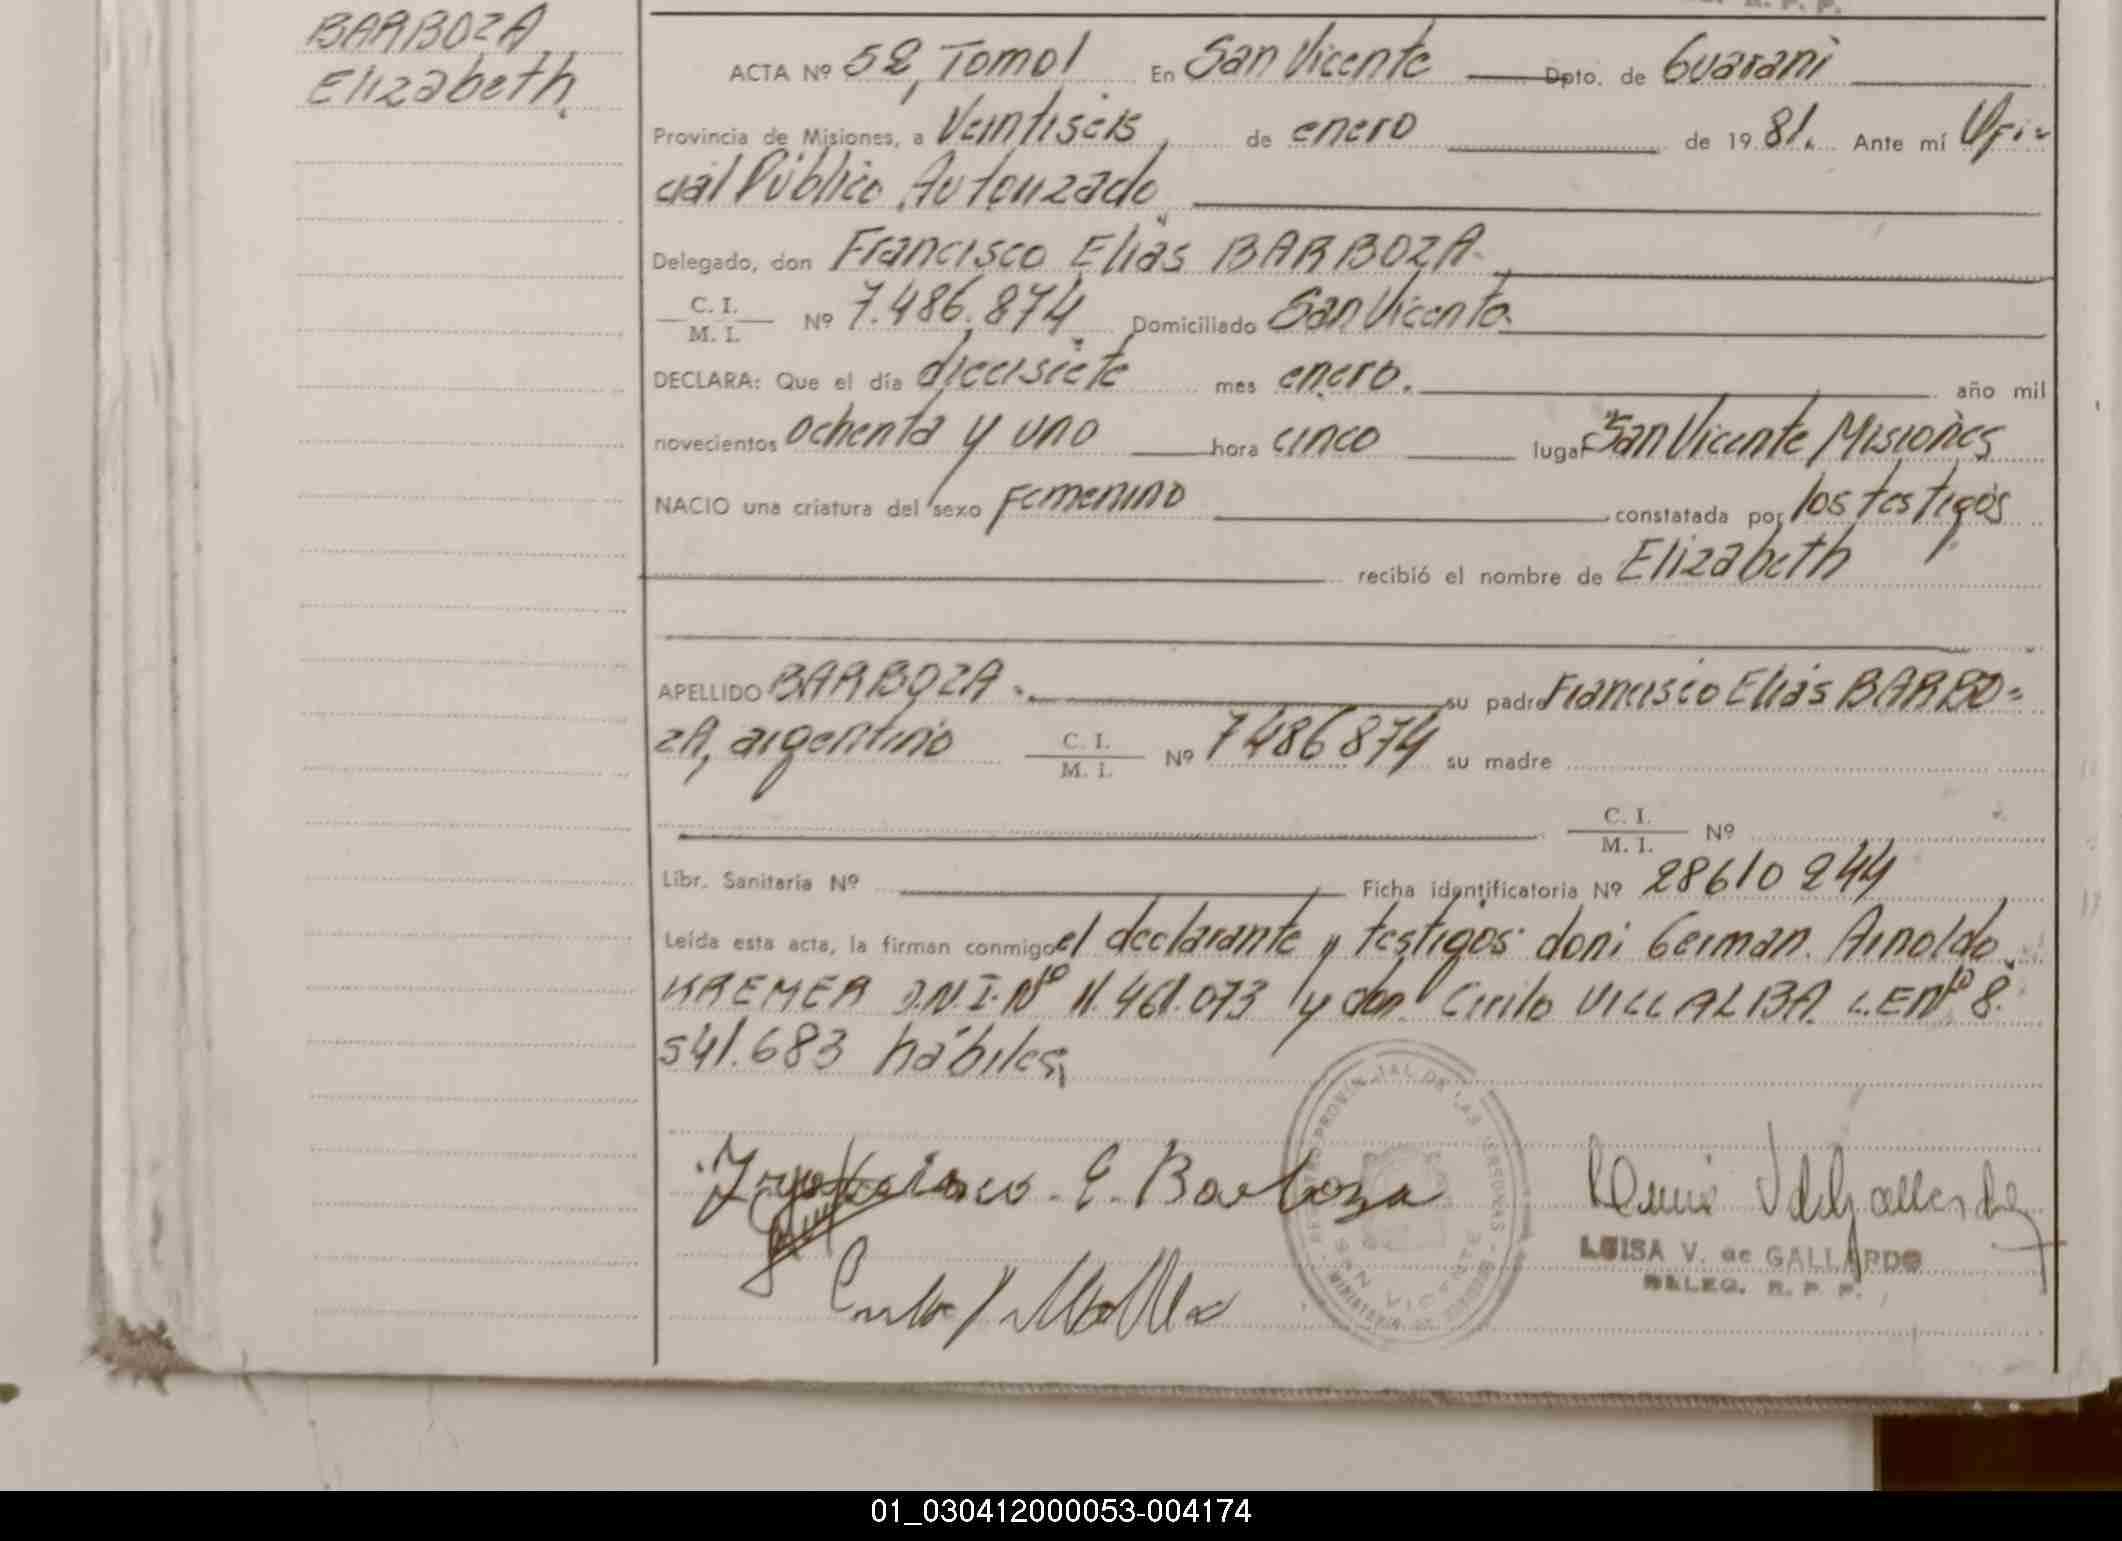 BARBOZA
Elizabeth.
ACTA Nº 52, Tomo I En San Vicente Dpto. de Guaraní
Provincia de Misiones, a Veintiseis de enero de 1981. Ante mí Ofi-
cial Público Autorizado
Delegado, don Francisco Elías BARBOZA
C. I.
M. I. Nº 7.486.874 Domiciliado San Vicente
DECLARA: Que el día diecisiete mes enero. año mil
novecientos ochenta y uno hora cinco lugar San Vicente Misiones
NACIO una criatura del sexo Femenino constatada por los testigos
recibió el nombre de Elizabeth
APELLIDO BARBOZA. su padre Francisco Elías BARBO=
ZA, argentino C. I.
M. I. Nº 7486874 su madre
C. I.
M. I. Nº
Libr. Sanitaria Nº Ficha identificatoria Nº 28610244
Leída esta acta, la firman conmigo el declarante y testigos: don German Arnoldo
KREMER D.N.I. Nº 11.461.073 y don Cirilo VILLALBA L.E Nº 8.
541.683 hábiles;
Francisco E. Barboza
REGISTRO PROVINCIAL DE LAS PERSONAS
SAN VICENTE
MINISTERIO DE GOBIERNO
LUISA V. de GALLARDO
DELEG. R. P. P.
01_030412000053-004174